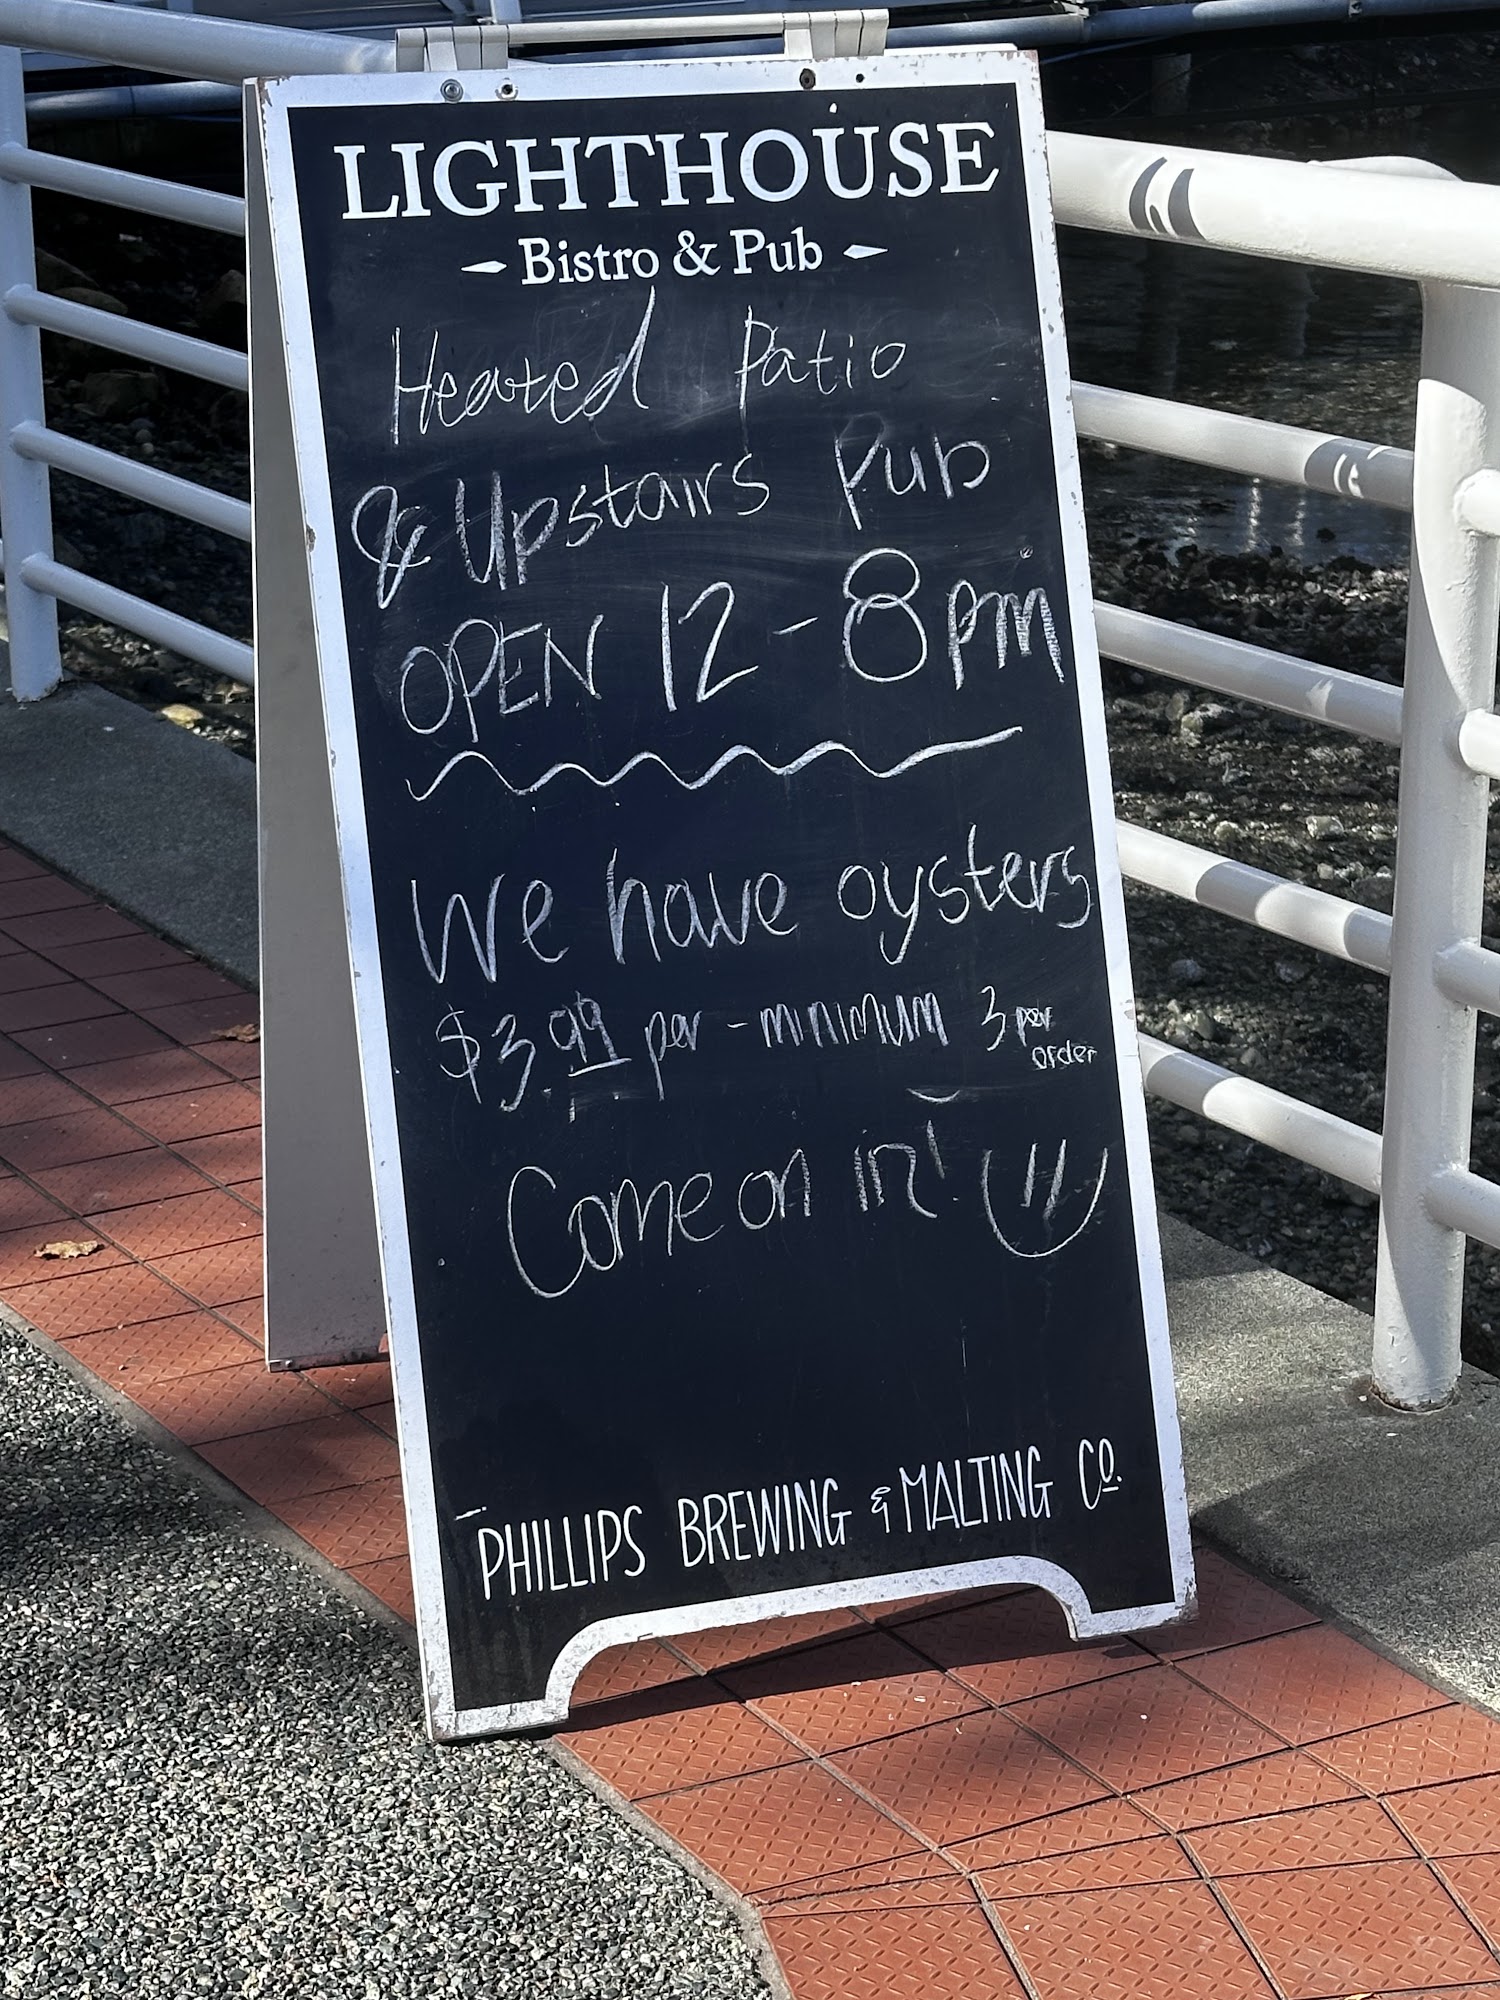 LIGHTHOUSE
Bistro & Pub
Heated Patio
& Upstairs Pub
OPEN 12 - 8pm
We have oysters
$3.99 per - minimum 3 per
order
Come on in!
PHILLIPS BREWING & MALTING CO.